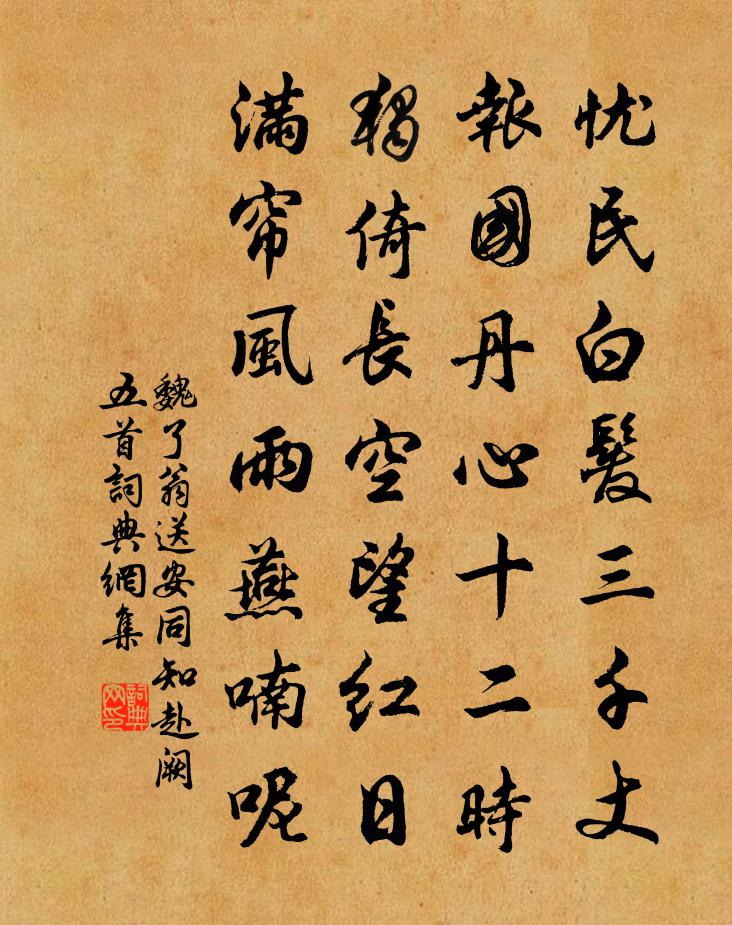 忧民白髮三千丈
報國丹心十二時
獨倚長空望红日
满帘風雨燕喃呢
魏了翁送安同知赴阙
五首詞典網集
詞典
网印